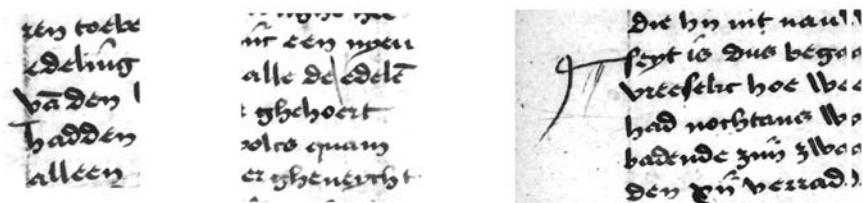 ren toebe
edeling
vā den
hadden
alleen
een nyeu
alle de edelē
ghehoert
volcs quam
er gheneycht
die hy uit nau
seyt is dus bego
vreeselic hoe we
had nochtans w
badende zijn zwo
den verrad